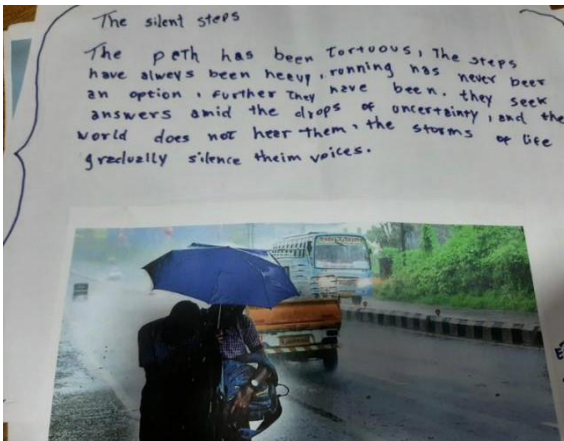 The silent steps
The path has been tortuous, The steps
have always been heavy, running has never been
an option, further They have been. they seek
answers amid the drops of uncertainty, and the
world does not hear them, the storms of life
gradually silence theim voices.